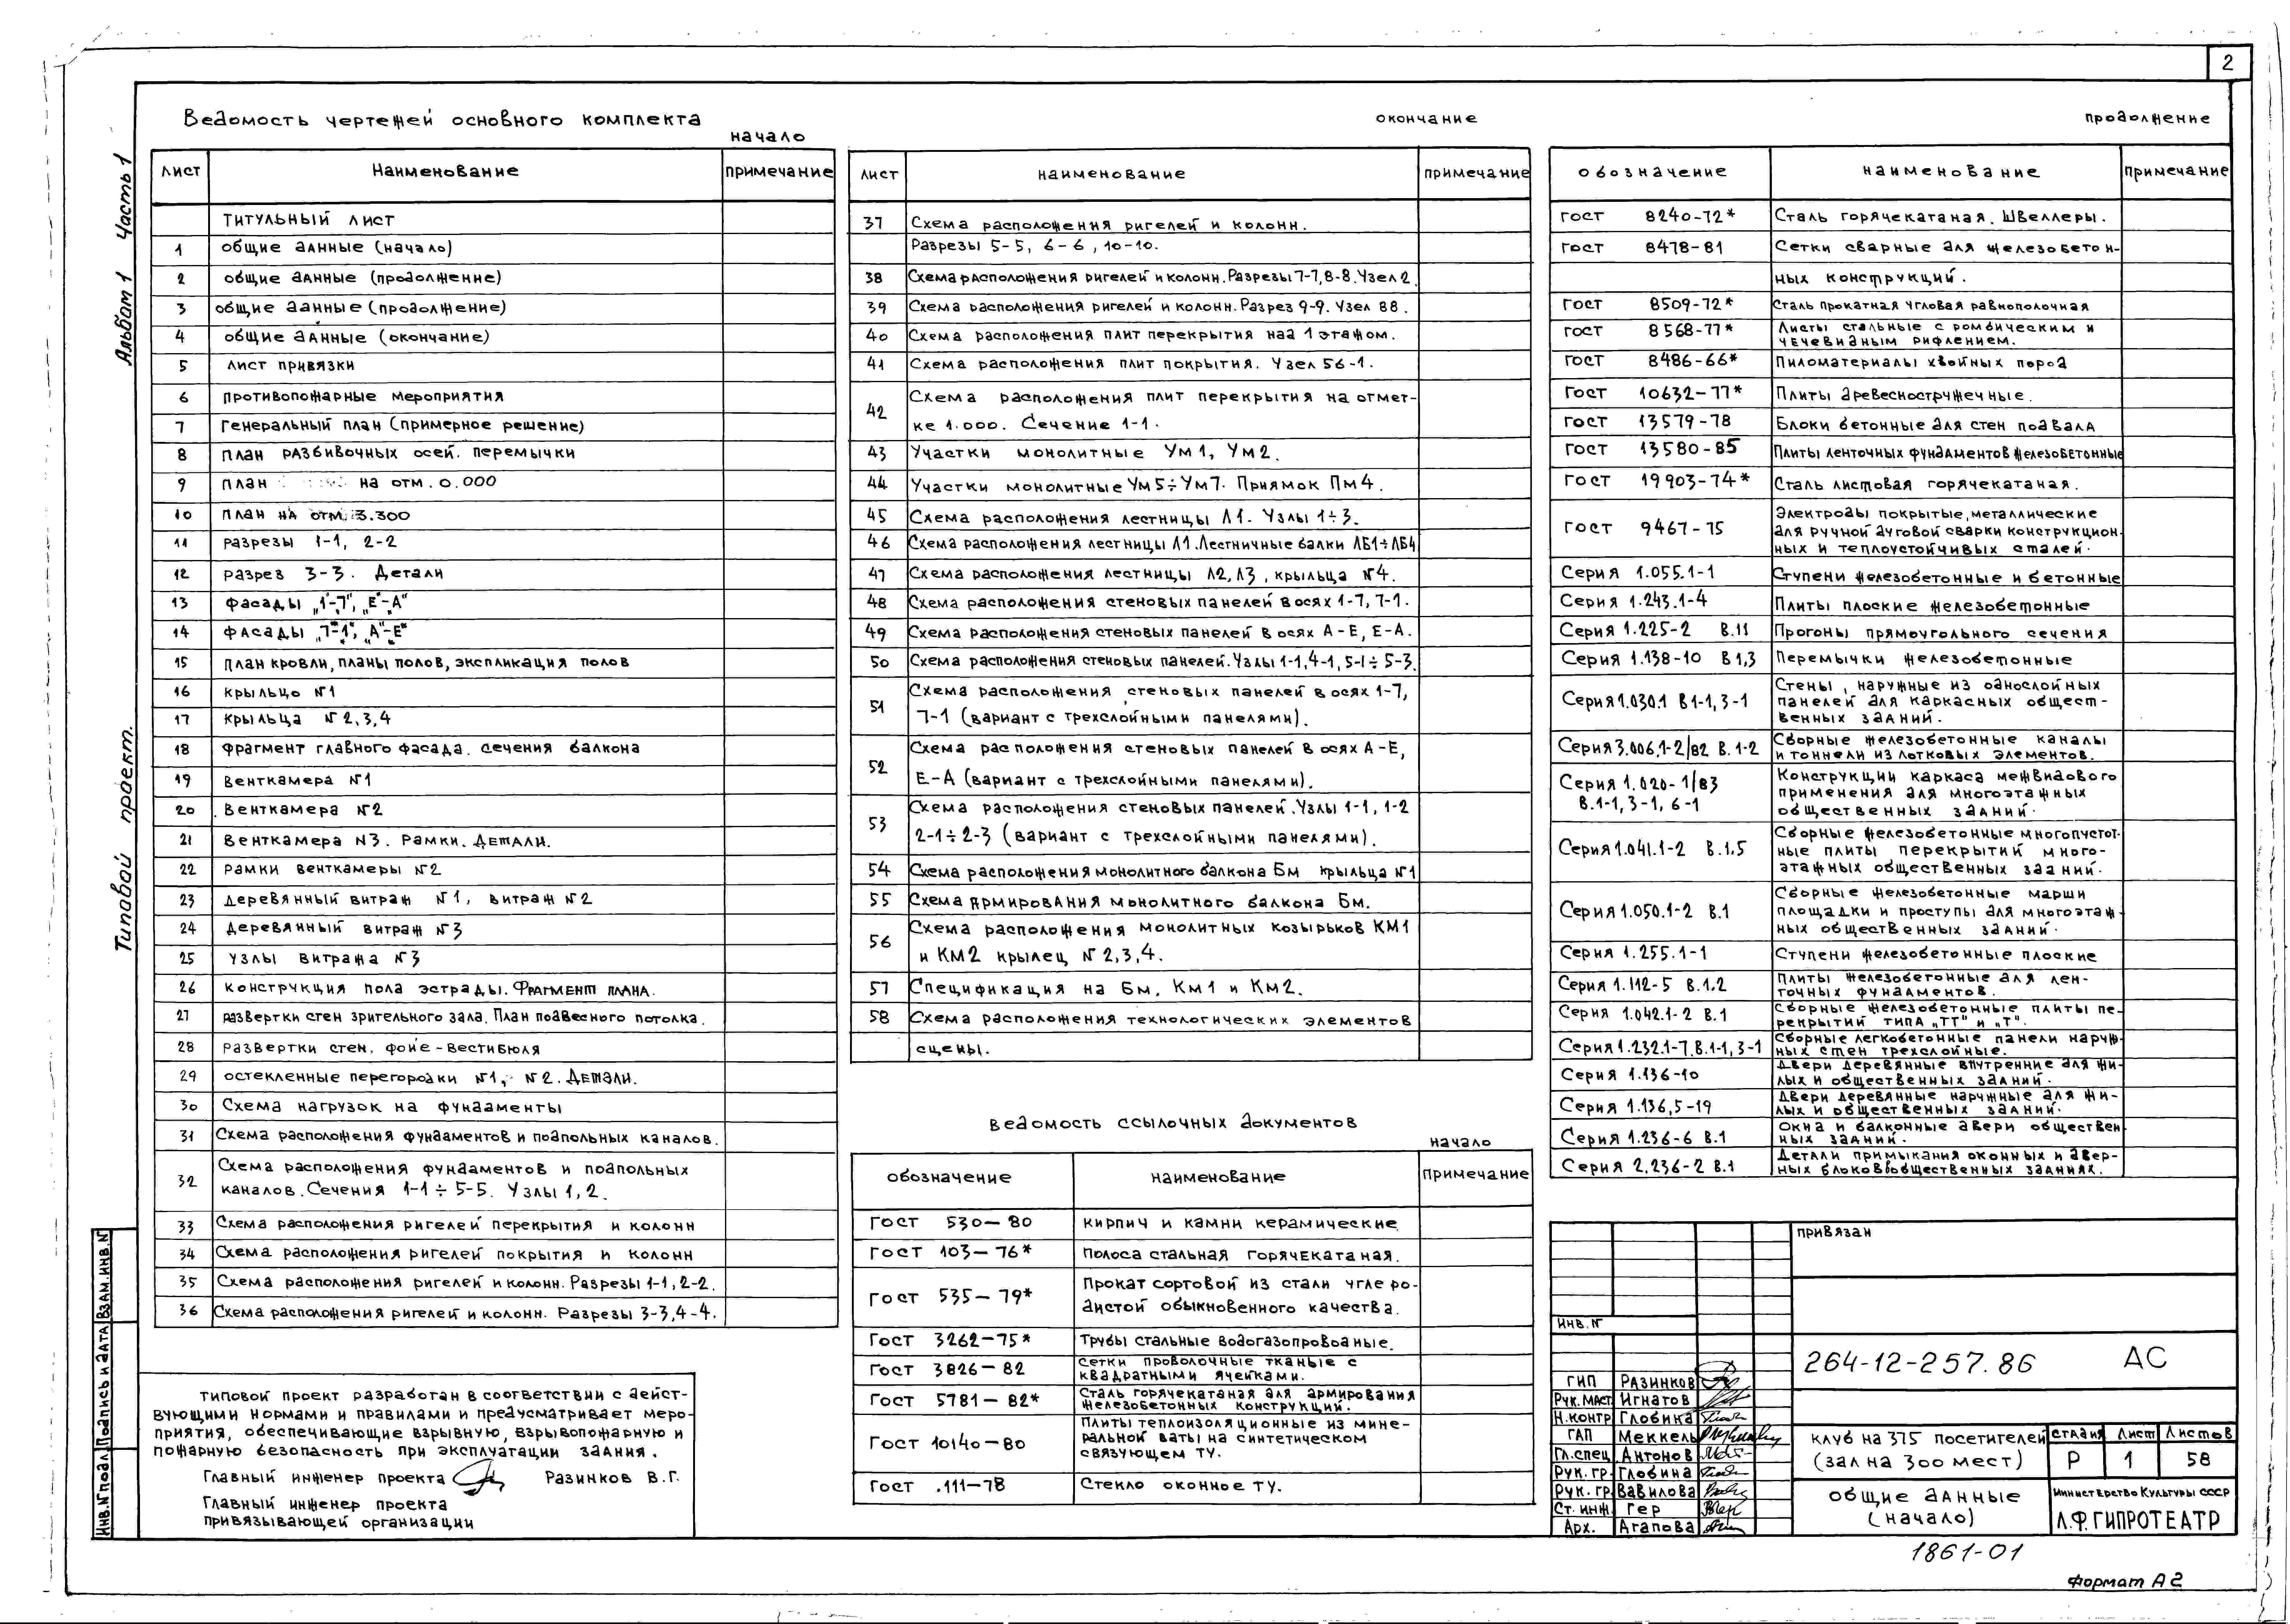 2
Ведомость чертежей основного комплекта
начало
Лист Наименование примечание
титульный лист
1 общие данные (начало)
2 общие данные (продолжение)
3 общие данные (продолжение)
4 общие данные (окончание)
5 лист привязки
6 противопожарные мероприятия
7 Генеральный план (примерное решение)
8 план разбивочных осей. перемычки
9 план на отм. 0.000
10 план на отм. 3.300
11 разрезы 1-1, 2-2
12 разрез 3-3. Детали
13 фасады „1"-„7", „Е"-„А"
14 фасады „7"-„1", „А"-„Е"
15 план кровли, планы полов, экспликация полов
16 крыльцо №1
17 крыльца №2,3,4
18 фрагмент главного фасада. сечения балкона
19 венткамера №1
20 венткамера №2
21 венткамера №3. Рамки. Детали.
22 рамки венткамеры №2
23 деревянный витраж №1, витраж №2
24 деревянный витраж №3
25 узлы витража №3
26 конструкция пола эстрады. Фрагмент плана.
27 развертки стен зрительного зала. План подвесного потолка.
28 развертки стен. фойе-вестибюля
29 остекленные перегородки №1, №2. Детали.
30 Схема нагрузок на фундаменты
31 Схема расположения фундаментов и подпольных каналов.
32 Схема расположения фундаментов и подпольных
каналов. Сечения 1-1÷5-5. Узлы 1,2.
33 Схема расположения ригелей перекрытия и колонн
34 Схема расположения ригелей покрытия и колонн
35 Схема расположения ригелей и колонн. Разрезы 1-1, 2-2.
36 Схема расположения ригелей и колонн. Разрезы 3-3, 4-4.
окончание
лист наименование примечание
37 Схема расположения ригелей и колонн.
Разрезы 5-5, 6-6, 10-10.
38 Схема расположения ригелей и колонн. Разрезы 7-7, 8-8. Узел 2.
39 Схема расположения ригелей и колонн. Разрез 9-9. Узел 88.
40 Схема расположения плит перекрытия над 1 этажом.
41 Схема расположения плит покрытия. Узел 56-1.
42 Схема расположения плит перекрытия на отмет-
ке 1.000. Сечение 1-1.
43 Участки монолитные Ум1, Ум2.
44 Участки монолитные Ум5÷Ум7. Приямок Пм4.
45 Схема расположения лестницы Л1. Узлы 1÷3.
46 Схема расположения лестницы Л1. Лестничные балки ЛБ1÷ЛБ4
47 Схема расположения лестницы Л2, Л3, крыльца №4.
48 Схема расположения стеновых панелей в осях 1-7, 7-1.
49 Схема расположения стеновых панелей в осях А-Е, Е-А.
50 Схема расположения стеновых панелей. Узлы 1-1, 4-1, 5-1÷5-3.
51 Схема расположения стеновых панелей в осях 1-7,
7-1 (вариант с трехслойными панелями).
52 Схема расположения стеновых панелей в осях А-Е,
Е-А (вариант с трехслойными панелями).
53 Схема расположения стеновых панелей. Узлы 1-1, 1-2
2-1÷2-3 (вариант с трехслойными панелями).
54 Схема расположения монолитного балкона Бм крыльца №1
55 Схема армирования монолитного балкона Бм.
56 Схема расположения монолитных козырьков КМ1
и КМ2 крылец №2,3,4.
57 Спецификация на Бм, Км1 и Км2.
58 Схема расположения технологических элементов
сцены.
Ведомость ссылочных документов
начало
обозначение наименование примечание
Гост 530-80 кирпич и камни керамические
Гост 103-76* Полоса стальная горячекатаная.
Гост 535-79* Прокат сортовой из стали угле ро-
дистой обыкновенного качества.
Гост 3262-75* Трубы стальные водогазопроводные.
Гост 3826-82 сетки проволочные тканые с
квадратными ячейками.
Гост 5781-82* Сталь горячекатаная для армирования
железобетонных конструкций.
Гост 10140-80 Плиты теплоизоляционные из мине-
ральной ваты на синтетическом
связующем ТУ.
Гост .111-78 Стекло оконное ТУ.
продолжение
обозначение наименование примечание
гост 8240-72* Сталь горячекатаная. Швеллеры.
гост 8478-81 Сетки сварные для железобетон-
ных конструкций.
гост 8509-72* Сталь прокатная угловая равнополочная
гост 8568-77* Листы стальные с ромбическим и
чечевидным рифлением.
гост 8486-66* Пиломатериалы хвойных пород
гост 10632-77* Плиты древесностружечные.
гост 13579-78 Блоки бетонные для стен подвала
гост 13580-85 Плиты ленточных фундаментов железобетонные
гост 19903-74* Сталь листовая горячекатаная.
гост 9467-75 Электроды покрытые, металлические
для ручной дуговой сварки конструкцион-
ных и теплоустойчивых сталей.
Серия 1.055.1-1 Ступени железобетонные и бетонные
Серия 1.243.1-4 Плиты плоские железобетонные
Серия 1.225-2 в.11 Прогоны прямоугольного сечения
Серия 1.138-10 в 1,3 Перемычки железобетонные
Серия 1.030.1 в 1-1, 3-1 Стены, наружные из однослойных
панелей для каркасных общест-
венных зданий.
Серия 3.006.1-2/82 в. 1-2 Сборные железобетонные каналы
и тоннели из лотковых элементов.
Серия 1.020-1/83
в.1-1, 3-1, 6-1 Конструкции каркаса межвидового
применения для многоэтажных
общественных зданий.
Серия 1.041.1-2 в.1.5 Сборные железобетонные многопустот-
ные плиты перекрытий много-
этажных общественных зданий.
Серия 1.050.1-2 в.1 Сборные железобетонные марши
площадки и проступы для многоэтаж-
ных общественных зданий.
Серия 1.255.1-1 Ступени железобетонные плоские
Серия 1.112-5 в.1.2 Плиты железобетонные для лен-
точных фундаментов.
Серия 1.042.1-2 в.1 Сборные железобетонные плиты пе-
рекрытий типа „ТТ" и „Т".
Серия 1.232.1-7. в.1-1, 3-1 Сборные легкобетонные панели наруж-
ных стен трехслойные.
Серия 1.136-10 Двери деревянные внутренние для жи-
лых и общественных зданий.
Серия 1.136,5-19 Двери деревянные наружные для жи-
лых и общественных зданий.
Серия 1.236-6 в.1 окна и балконные двери обществен-
ных зданий.
Серия 2.236-2 в.1 Детали примыкания оконных и двер-
ных блоков в общественных зданиях.
типовой проект разработан в соответствии с дейст-
вующими нормами и правилами и предусматривает меро-
приятия, обеспечивающие взрывную, взрывопожарную и
пожарную безопасность при эксплуатации здания.
Главный инженер проекта Разинков В.Г.
Главный инженер проекта
привязывающей организации
привязан
инв. N
264-12-257.86 АС
ГИП Разинков
Рук. маст. Игнатов
Н.контр Глобина
ГАП Меккель
Гл. спец. Антонов
Рук. гр. Глобина
Рук. гр. Вавилова
Ст. инж Гер
Арх. Агапова
клуб на 375 посетителей
(зал на 300 мест)
стадия Лист Листов
Р 1 58
общие данные
(начало)
Министерство Культуры СССР
Л.Ф.ГИПРОТЕАТР
1861-01
Формат А2
Типовой проект. Альбом 1 Часть 1
Инв.N подл. Подпись и дата Взам.инв.N